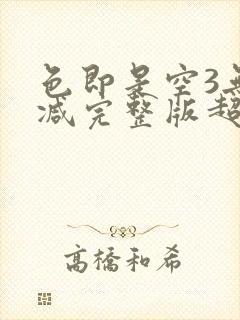 色即是空3无
减完整版超
高橋和希